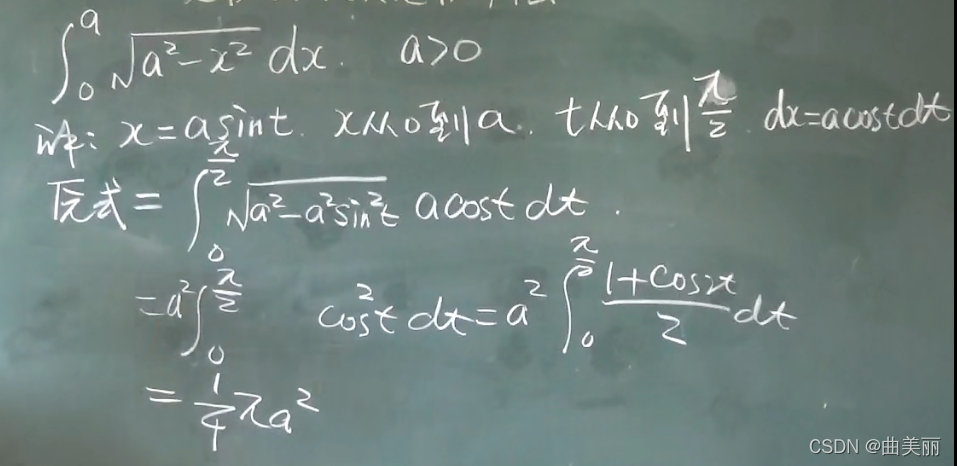 ∫₀ᵃ √(a²-x²) dx. a>0
详: x=asint. x从0到a. t从0到π/2. dx=acostdt
原式=∫₀^(π/2) √(a²-a²sin²t) acost dt.
=a²∫₀^(π/2) cos²t dt=a²∫₀^(π/2) (1+cos2t)/2 dt
=1/4 πa²
CSDN @曲美丽